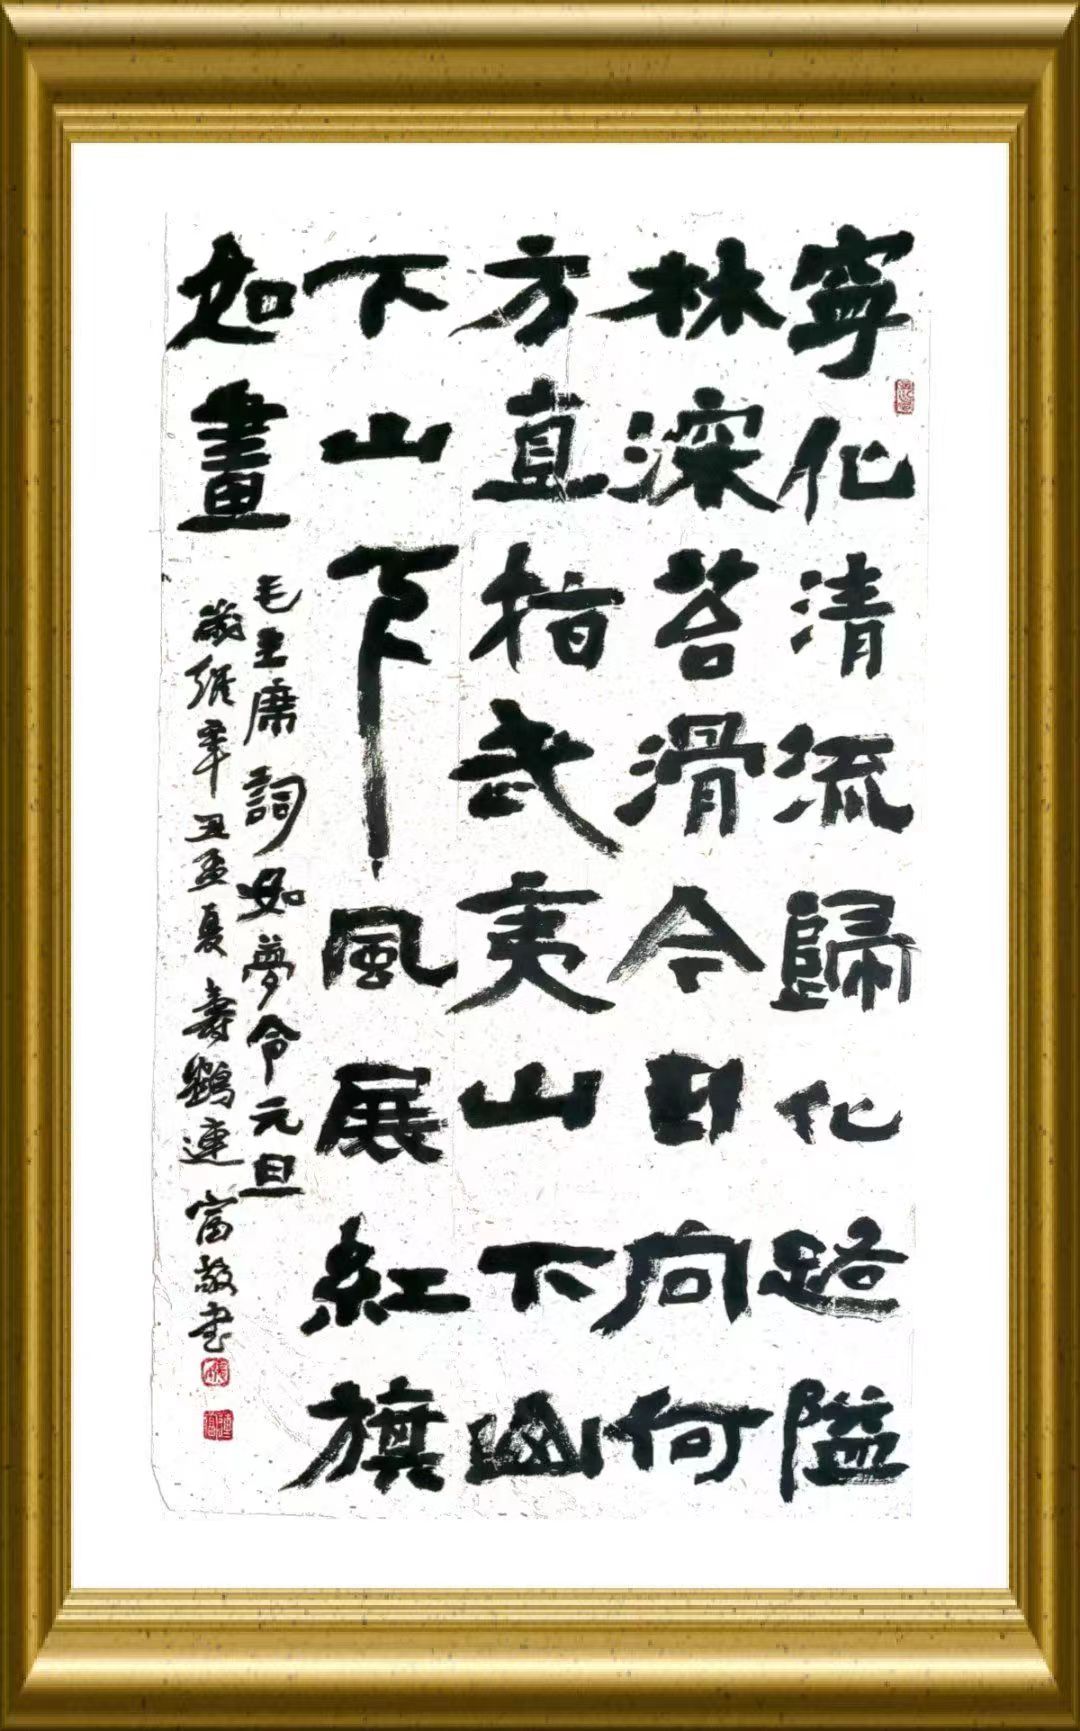 寧化清流歸化路隘
林深苔滑今日向何
方直指武夷山下山
下山下風展紅旗
如畫
毛主席詞如夢令元旦
歲維辛丑孟夏壽鶴連富敬書